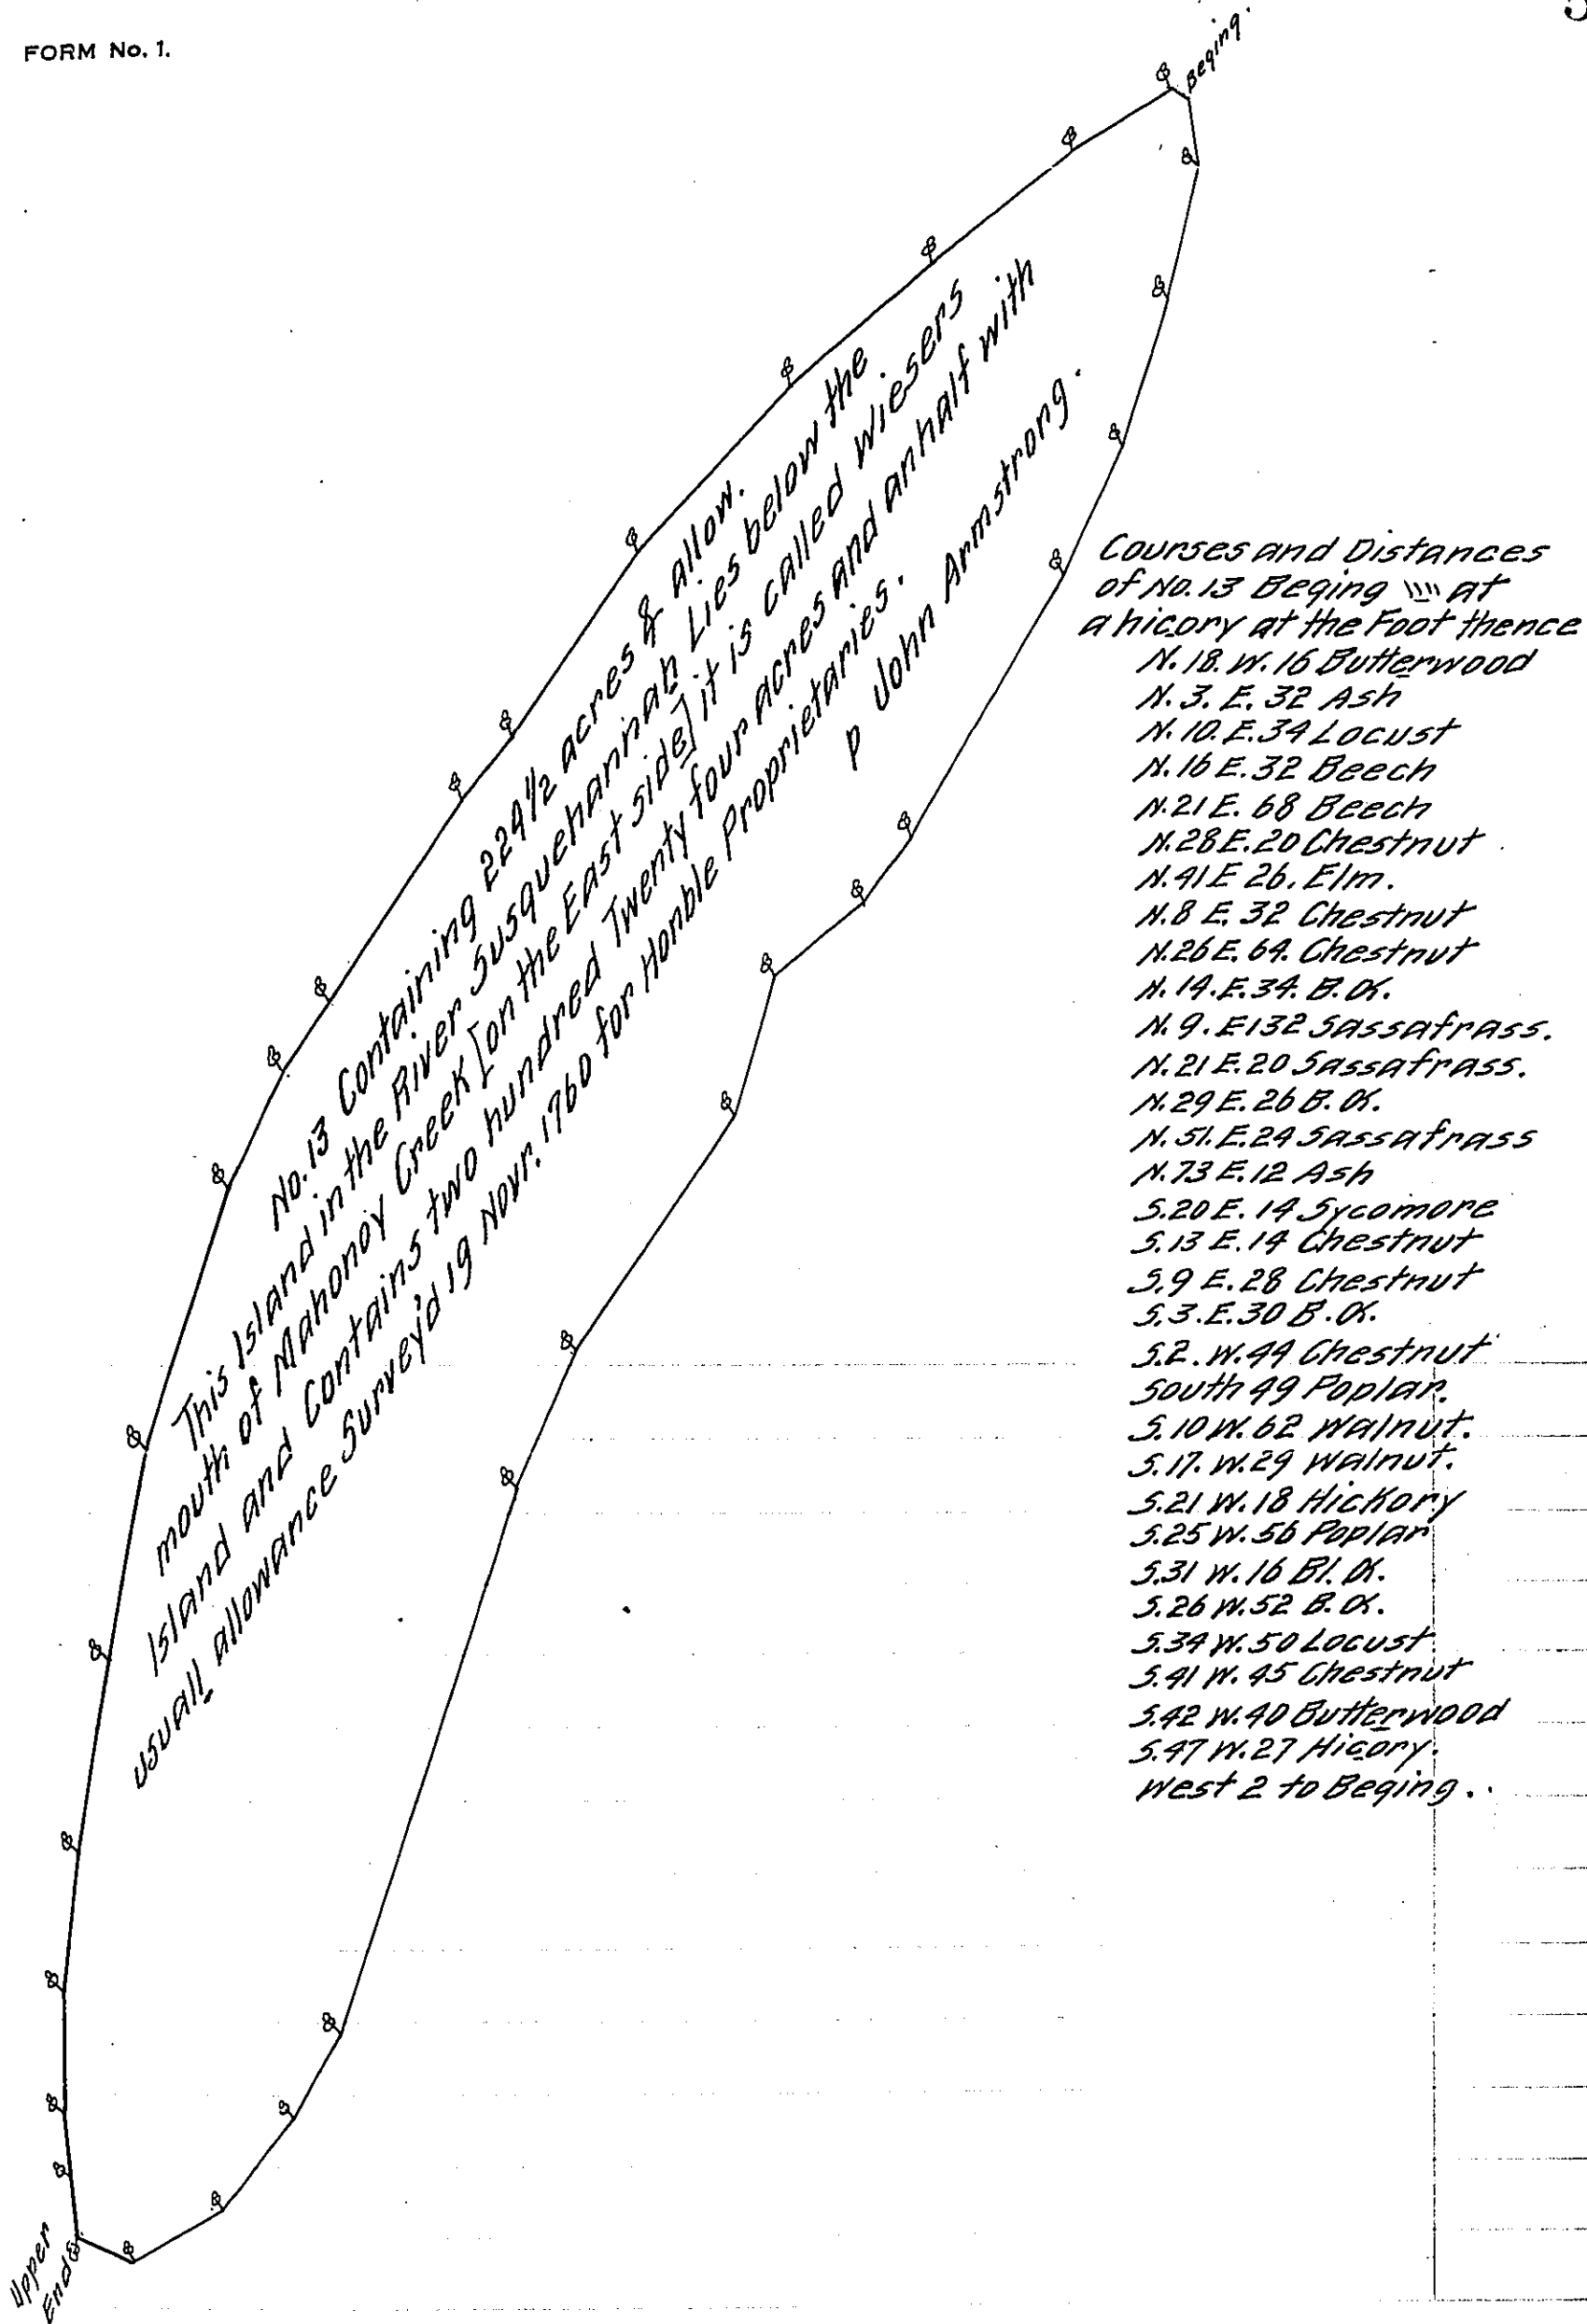 FORM No. 1.
Beging.
No. 13 Containing 224 1/2 acres & allow.
This Island in the River Susquehannah Lies below the
mouth of Mahonoy Creek [on the East side] it is called Wiesers
Island and Contains two hundred Twenty four acres and anhalf with
usuall allowance Survey'd 19 Novr. 1760 for Honble Proprietaries.
p John Armstrong.
Courses and Distances
of No. 13 Beging at
a hicory at the Foot thence
N. 18. W. 16 Butterwood
N. 3. E. 32 Ash
N. 10. E. 34 Locust
N. 16 E. 32 Beech
N. 21 E. 68 Beech
N. 28 E. 20 Chestnut
N. 41 E 26. Elm.
N. 8 E. 32 Chestnut
N. 26 E. 64. Chestnut
N. 14. E. 34. B. O.
N. 9. E 132 Sassafrass.
N. 21 E. 20 Sassafrass.
N. 29 E. 26 B. O.
N. 51. E. 24 Sassafrass
N. 73 E. 12 Ash
S. 20 E. 14 Sycomore
S. 13 E. 14 Chestnut
S. 9 E. 28 Chestnut
S. 3. E. 30 B. O.
S. 2. W. 44 Chestnut
South 49 Poplar.
S. 10 W. 62 Walnut.
S. 17. W. 29 Walnut.
S. 21 W. 18 Hickory
S. 25 W. 56 Poplar
S. 31 W. 16 Bl. O.
S. 26 W. 52 B. O.
S. 34 W. 50 Locust
S. 41 W. 45 Chestnut
S. 42 W. 40 Butterwood
S. 47 W. 27 Hicory.
West 2 to Beging.
Upper
End